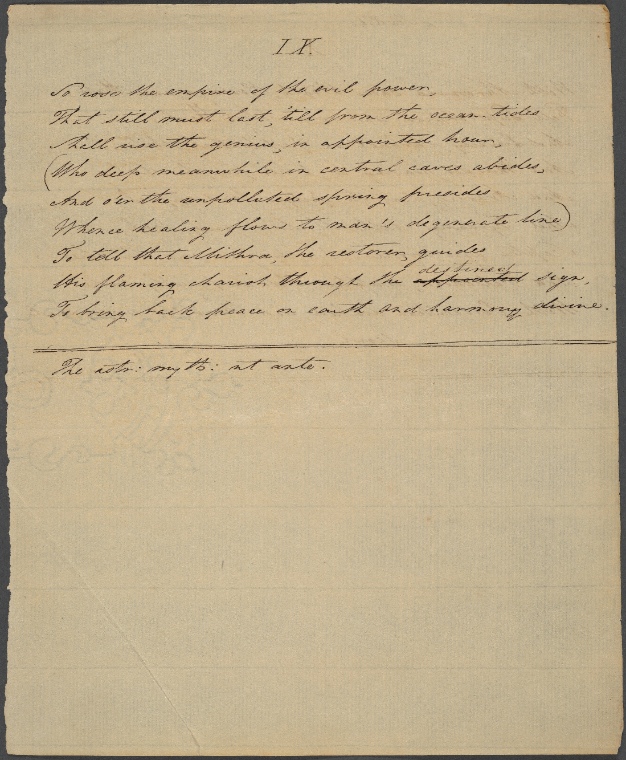 IX.
So rose the empire of the evil power,
That still must last, 'till from the ocean-tides
Shall rise the genius, in appointed hour,
(Who deep meanwhile in central caves abides,
And o'er the unpolluted spring presides
Whence healing flows to man's degenerate line)
To tell that Mithra, the restorer, guides
His flaming chariot through the appointed destined sign,
To bring back peace on earth and harmony divine.
The astr: myth: ut ante.